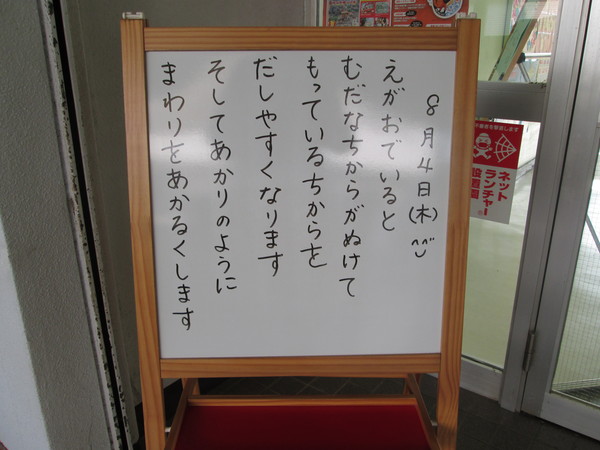 8月4日(木)
えがおでいると
むだなちからがぬけて
もっているちからを
だしやすくなります
そしてあかりのように
まわりをあかるくします
ネット
ランチャー
設置園